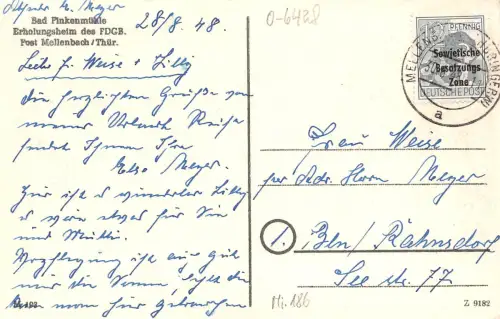 Absender E. Meyer
Bad Pinkenmühle
Erholungsheim des FDGB.
Post Mellenbach/Thür.
28/8.48.
O-6428
Liebe Fr. Weise + Lilly
die herzlichsten Grüße von
meiner Urlaubs Reise
sendet Ihnen Ihre
Else Meyer.
Hier ist es wunderbar Lilly
es wäre etwas für Sie
und Mutti.
Verpflegung ist auch gut
nur die Sonne,
man hier gebrauchen
PFENNIG
Sowjetische
Besatzungs
Zone
DEUTSCHE POST
MELLENBACH
a
Frau Weise
per Adr. Herrn Meyer
1. Bln/Rahnsdorf
See str. 77
Mi. 186
Z 9182